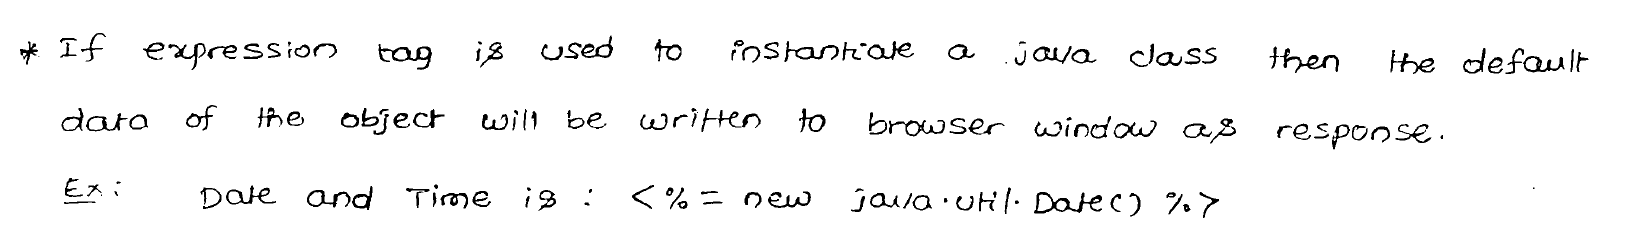 * If expression tag is used to instantiate a java class then the default
data of the object will be written to browser window as response.
Ex: Date and Time is : <%= new java.util.Date() %>